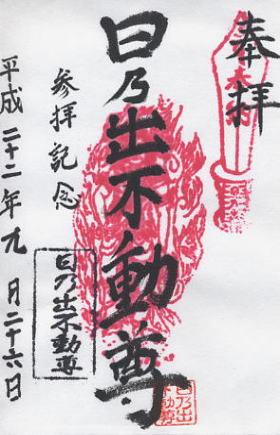 奉拝
日乃出不動尊
参拝記念
日乃出不動尊
平成二十二年九月二十六日
日乃出
不動尊